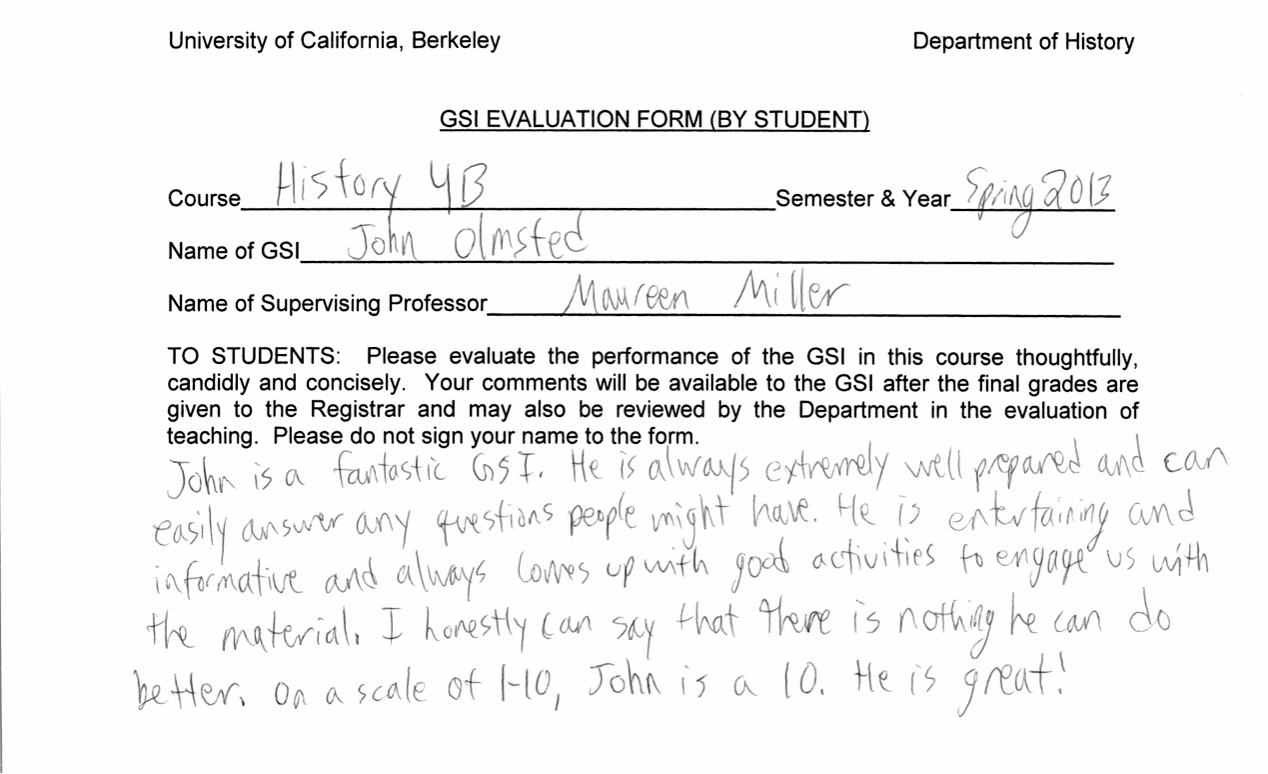 University of California, Berkeley Department of History
GSI EVALUATION FORM (BY STUDENT)
Course History 4B Semester & Year Spring 2013
Name of GSI John Olmsted
Name of Supervising Professor Maureen Miller
TO STUDENTS: Please evaluate the performance of the GSI in this course thoughtfully,
candidly and concisely. Your comments will be available to the GSI after the final grades are
given to the Registrar and may also be reviewed by the Department in the evaluation of
teaching. Please do not sign your name to the form.
John is a fantastic GSI. He is always extremely well prepared and can
easily answer any questions people might have. He is entertaining and
informative and always comes up with good activities to engage us with
the material. I honestly can say that there is nothing he can do
better. On a scale of 1-10, John is a 10. He is great!